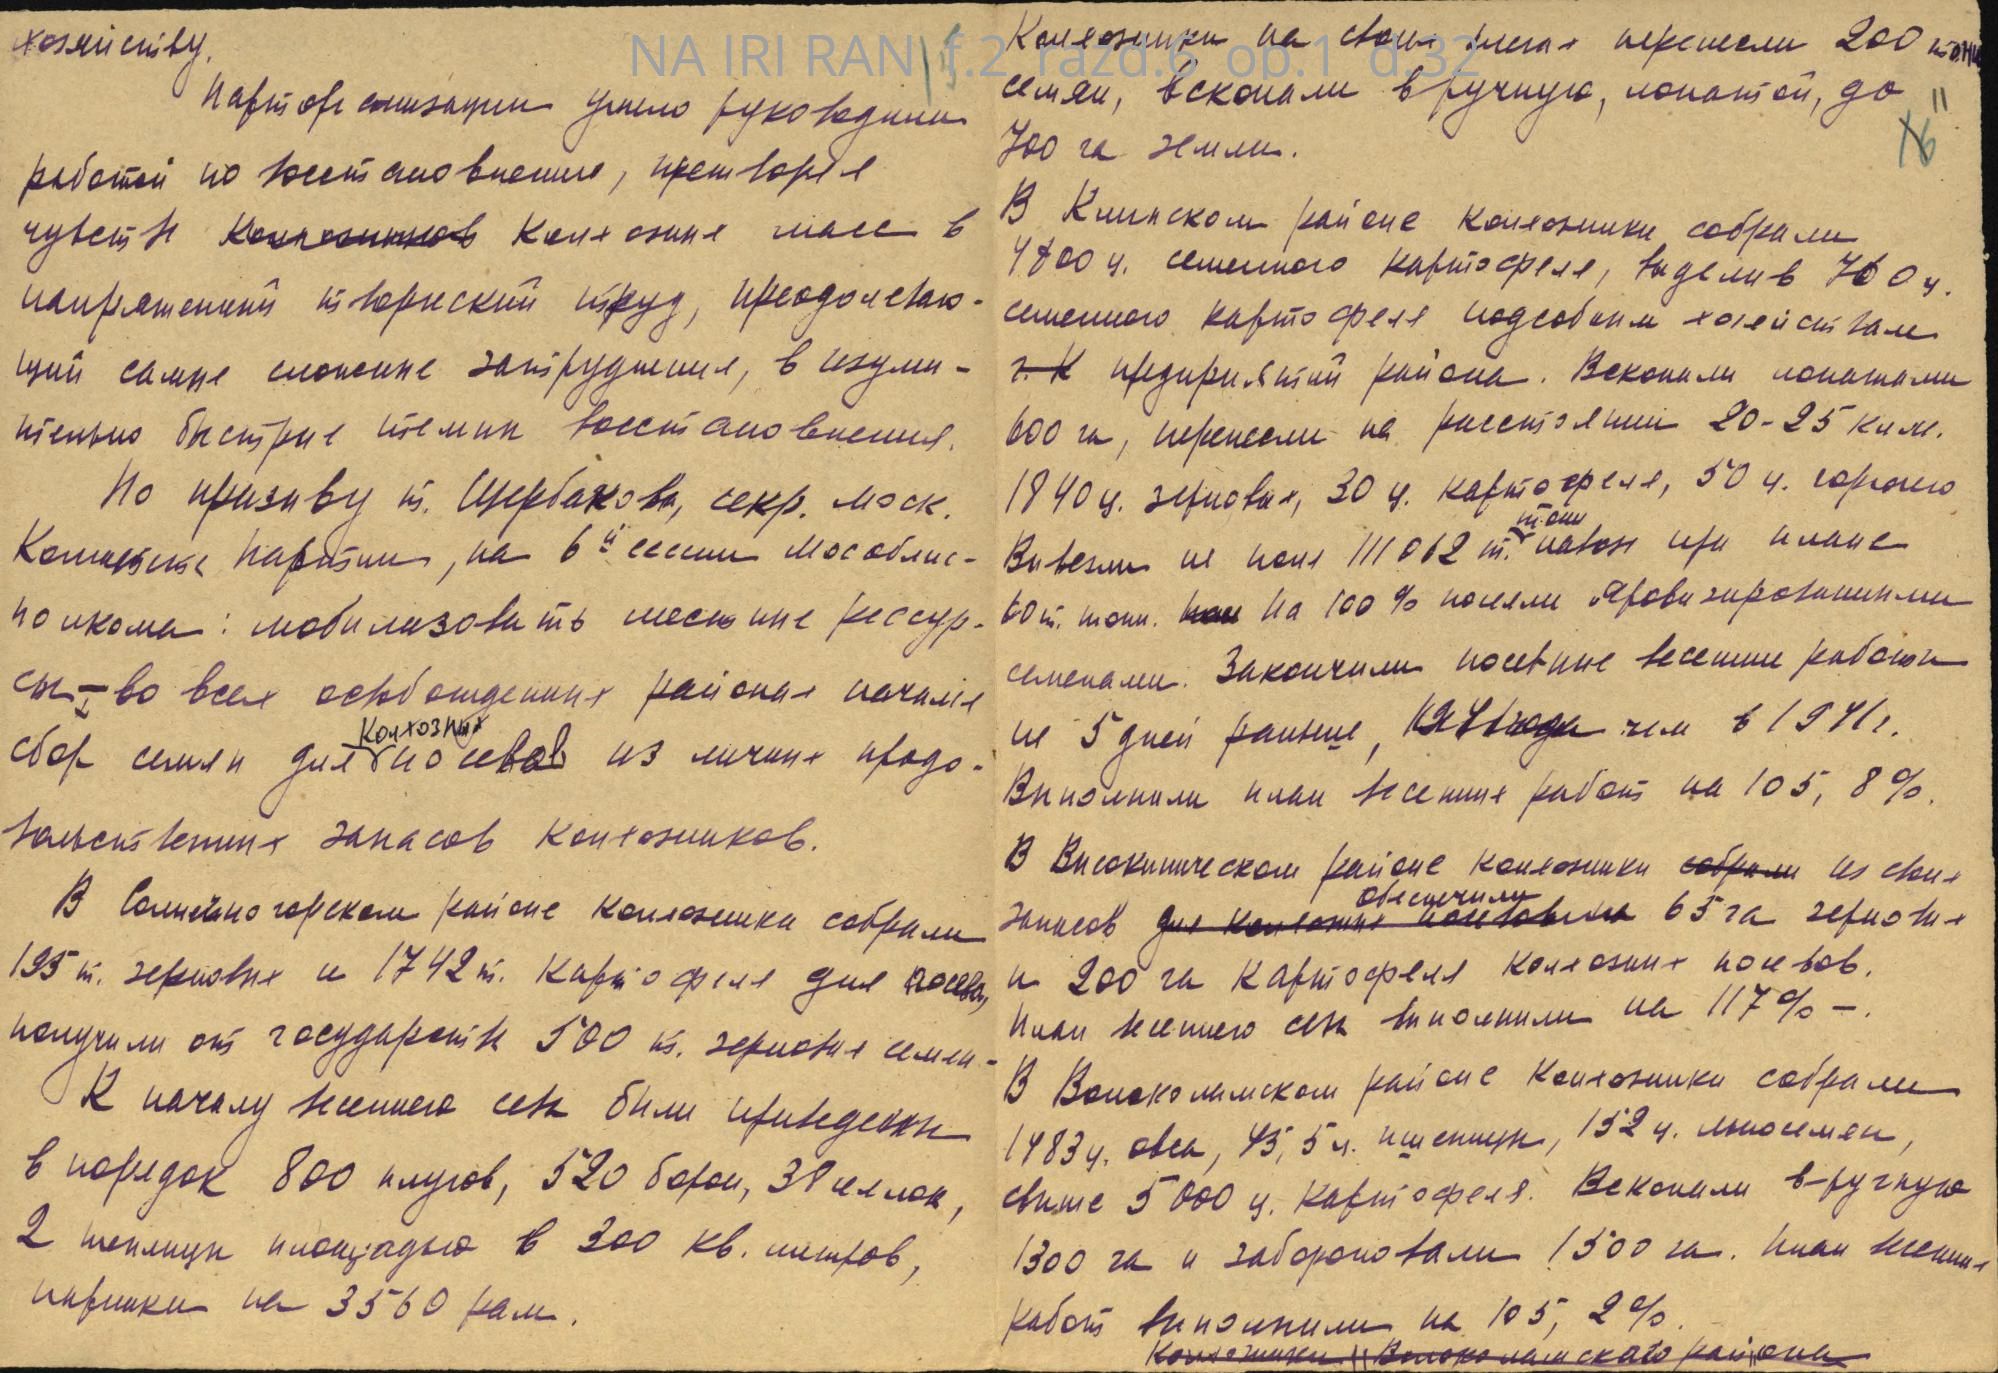 NA IRI RAN f.2 razd.6 op.1 d.32
хозяйству.
Парторганизации умело руководили
работой по восстановлению, претворяя
чувства колхозников колхозных масс в
напряженный творческий труд, преодолеваю-
щий самые сложные затруднения, в изуми-
тельно быстрые темпы восстановления.
По призыву т. Щербакова, секр. моск.
Комитета партии, на 6й сессии Мособлис-
полкома: мобилизовать местные рессур-
сы – во всех освобожденных районах начался
колхозных
сбор семян для посевов из личных продо-
вольственных запасов колхозников.
В Солнечногорском районе колхозники собрали
195 т. зерновых и 1742 т. картофеля для посева,
получили от государства 500 т. зерновых семян.
К началу весеннего сева были приведены
в порядок 800 плугов, 520 борон, 38 сеялок,
2 теплицы площадью в 300 кв. метров,
парники на 3560 рам.
16
Колхозники на своих плечах перенесли 200 тонн
семян, вскопали вручную, лопатой, до
700 га земли.
В Клинском районе колхозники собрали
4800 ц. семенного картофеля, выделив 700 ц.
семенного картофеля подсобным хозяйствам
г. К предприятий района. Вскопали лопатами
600 га, перенесли на расстоянии 20-25 килм.
1840 ц. зерновых, 30 ц. картофеля, 50 ц. горючего
тонн
Вывезли на поля 111062 т. навоза при плане
60 т. тонн. На 100% посеяли яровизированными
семенами. Закончили посевные весенние работы
на 5 дней раньше, 1941 года чем в 1941 г.
Выполнили план весенних работ на 105,8%.
В Высокиническом районе колхозники собрали из своих
обеспечили
запасов для колхозных посевов 65 га зерновых
и 200 га картофеля колхозных посевов.
План весеннего сева выполнили на 117% –.
В Волоколамском районе колхозники собрали
1483 ц. овса, 45,5 ц. пшеницы, 152 ц. льносемян,
свыше 5000 ц. картофеля. Вскопали в-ручную
1300 га и забороновали 1500 га. План весенних
работ выполнили на 105,2%.
Колхозники Волоколамского района